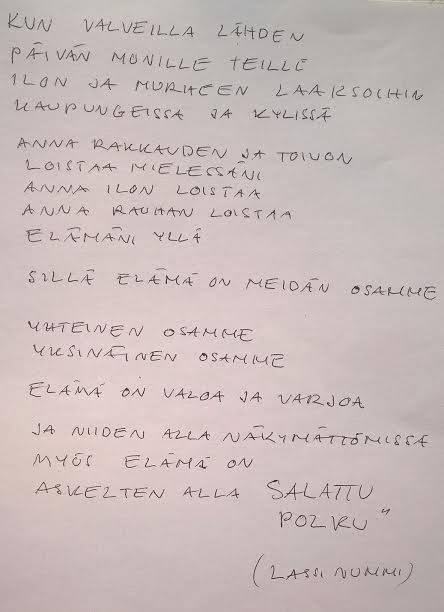 KUN VALVEILLA LÄHDEN
PÄIVÄN MONILLE TEILLE
ILON JA MURHEEN LAAKSOIHIN
KAUPUNGEISSA JA KYLISSÄ
ANNA RAKKAUDEN JA TOIVON
LOISTAA MIELESSÄNI
ANNA ILON LOISTAA
ANNA RAUHAN LOISTAA
ELÄMÄNI YLLÄ
SILLÄ ELÄMÄ ON MEIDÄN OSAMME
YHTEINEN OSAMME
YKSINÄINEN OSAMME
ELÄMÄ ON VALOA JA VARJOA
JA NIIDEN ALLA NÄKYMÄTTÖMISSÄ
MYÖS ELÄMÄ ON
ASKELTEN ALLA SALATTU
POLKU"
(LASSI NUMMI)